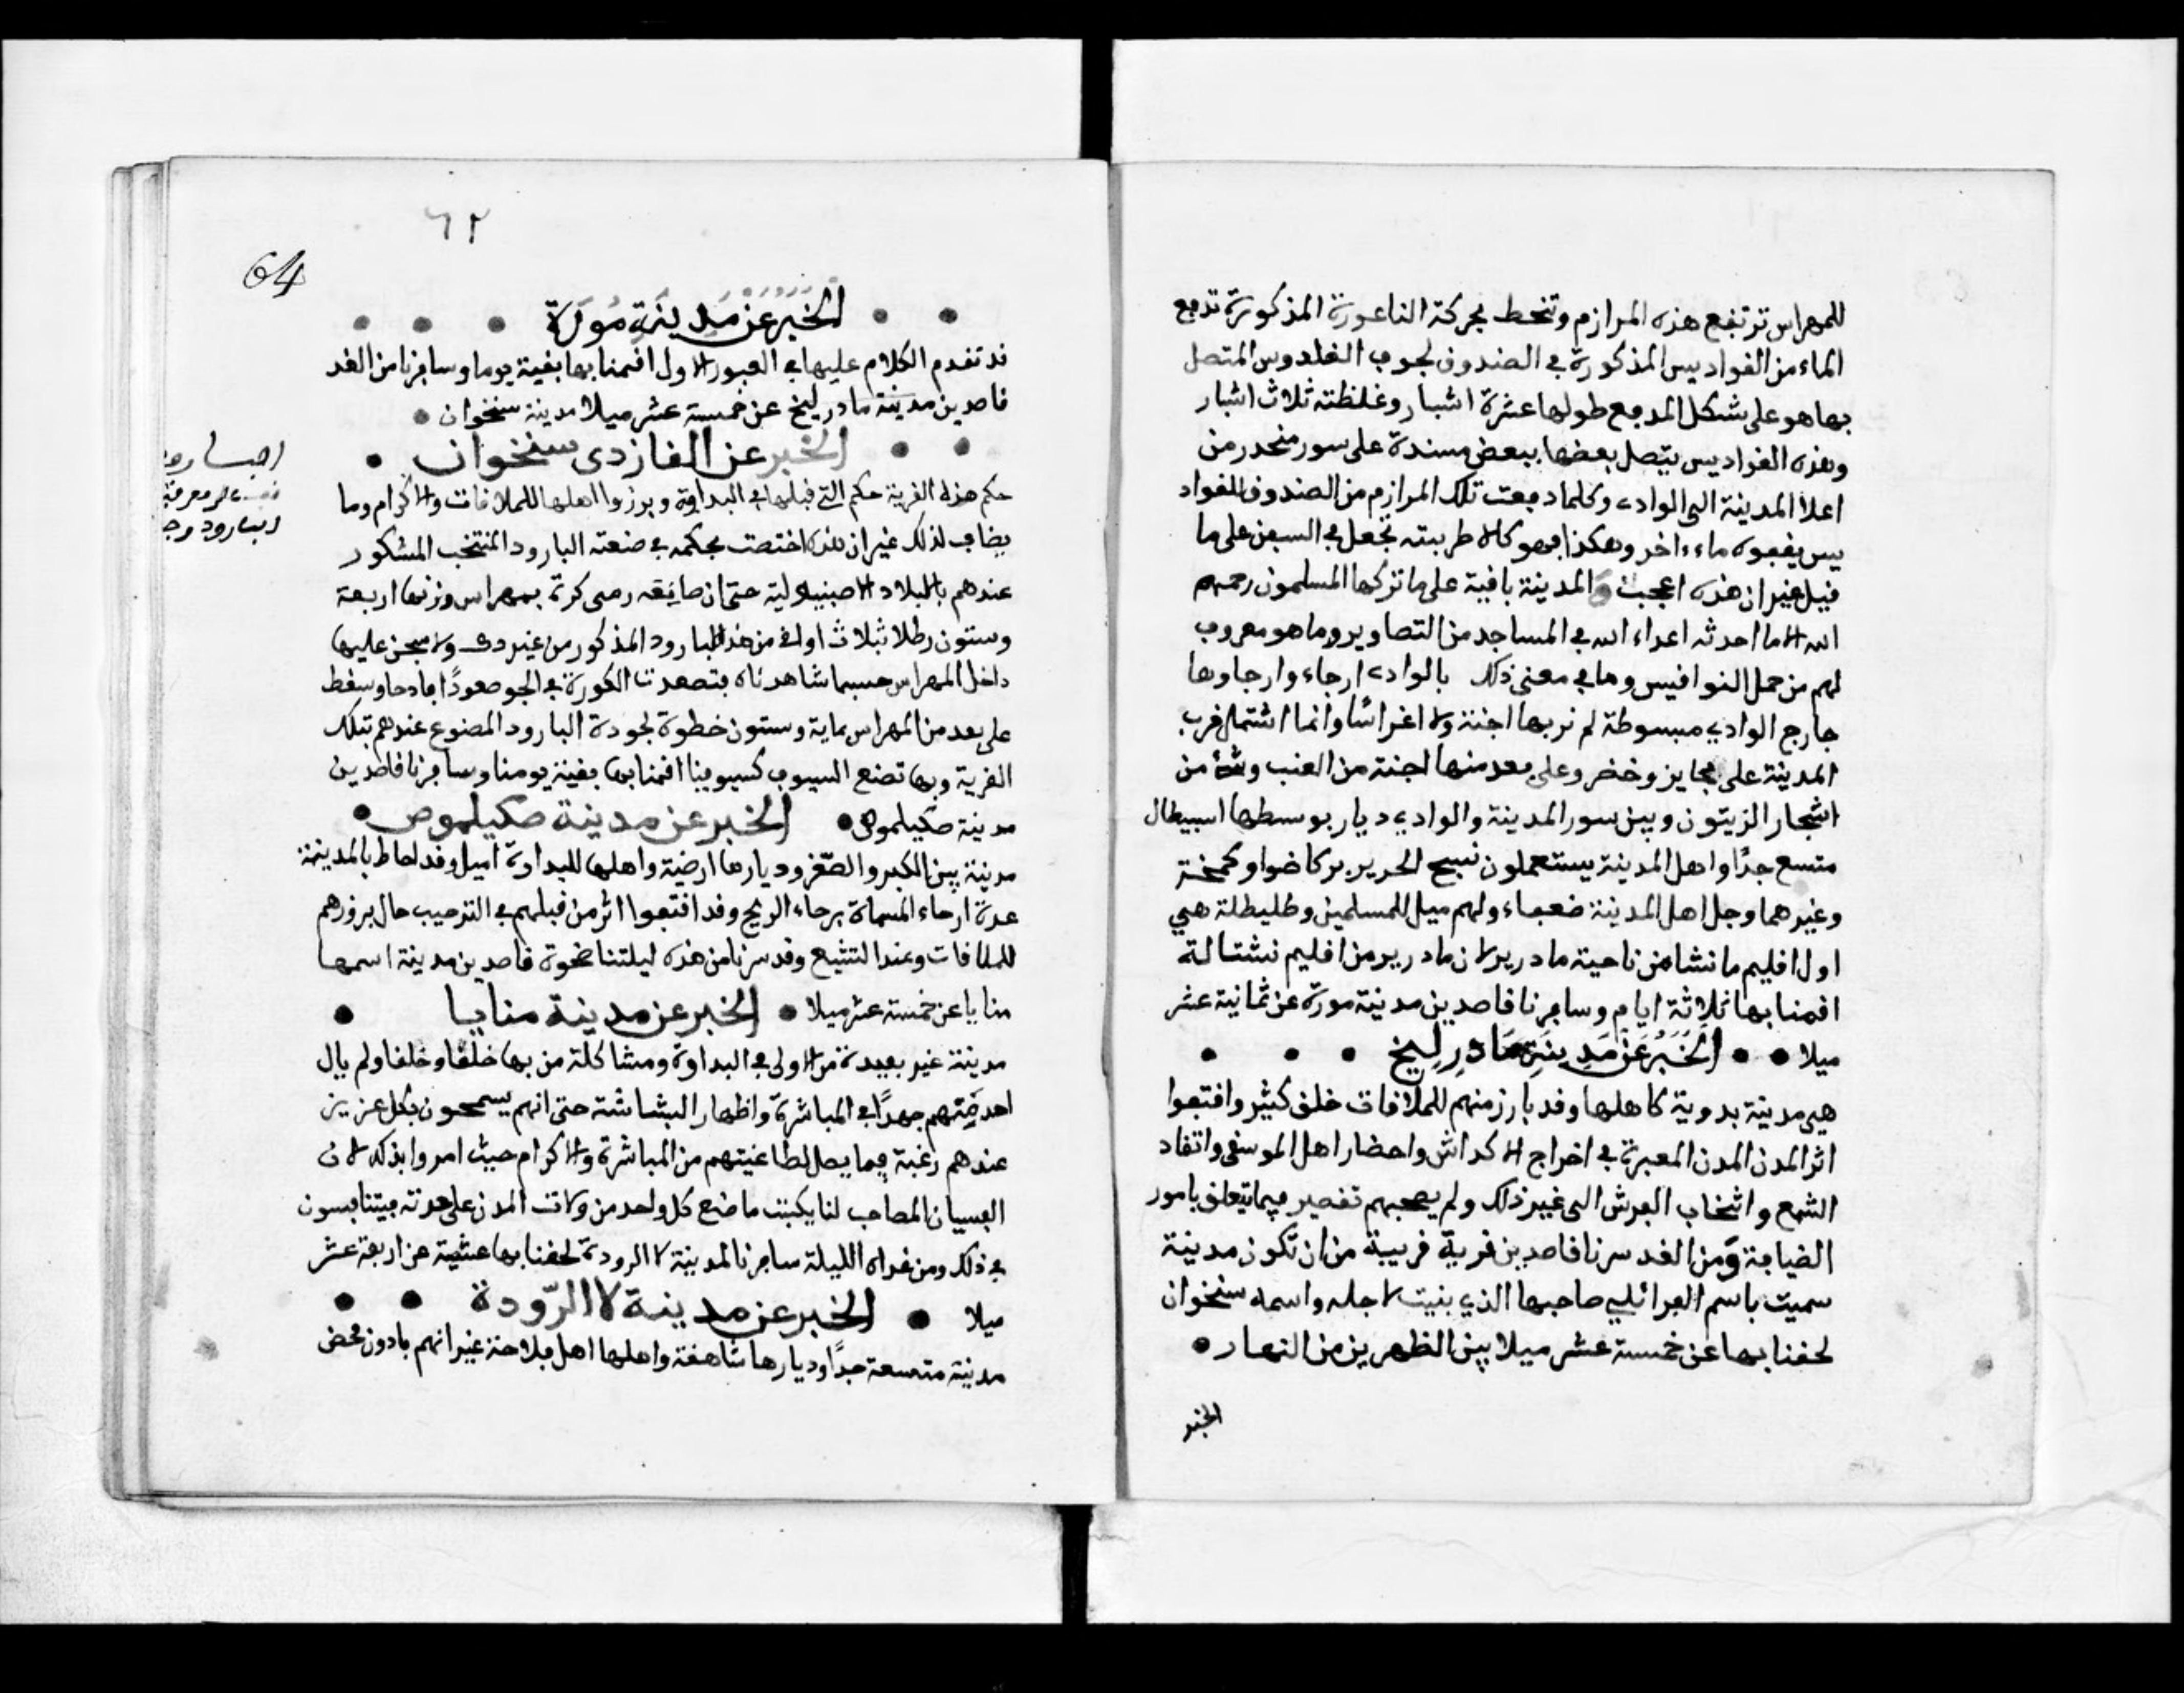 للمهراس ترتفع هذه المرازم وتنحط بحركة الناعورة المذكورة تدفع
الماء من القواديس المذكورة في الصندوق لجوف القادوس المتصل
بها هو على شكل المدفع طولها عشرة اشبار وغلظته ثلاث اشبار
وهذه القواديس يتصل بعضها ببعض مسندة على سور منحدر من
اعلا المدينة الى الوادي وكلما دفعت تلك المرازم من الصندوق للقواد
يس يقفوه ماء اخر وهكذا فهو كالا طريبته تجعل في السفن على ما
قيل غير ان هذه اعجب والمدينة باقية على ما تركها المسلمون رحمهم
الله الا ما احدثه اعداء الله في المساجد من التصاوير وما هو معروف
لهم من حمل النواقيس وما في معنى ذلك بالوادي ارجاء وارجاوها
خارج الوادي مبسوطة لم نر بها اجنة ولا اغراسا وانما اشتمل قرب
المدينة على بحاير وخضر وعلى بعد منها اجنة من العنب وشيء من
اشجار الزيتون وبين سور المدينة والوادي ديار بوسطها اسبيطال
متسع جدًا واهل المدينة يستعملون نسيج الحرير بركاضوا وكمخة
وغيرهما وجل اهل المدينة ضعفاء ولهم ميل للمسلمين وطليطلة هي
اول اقليم مانشا من ناحية مادريد لان مادريد من اقليم نشتالة
اقمنا بها ثلاثة ايام وسافرنا قاصدين مدينة مورة عن ثمانية عشر
ميلا • • الخَبَرُ عَنْ مَدِينَةِ مَادِرِلِيخ • • •
هي مدينة بدوية كاهلها وقد بارز منهم للملاقات خلق كثير واقتفوا
اثر المدن المدن المعبرة في اخراج الاكداش واحضار اهل الموسقى واتقاد
الشمع وانتخاب الفرش الى غير ذلك ولم يصحبهم تقصير فيما يتعلق بامور
الضيافة ومن الغد سرنا قاصدين قرية قريبة من ان تكون مدينة
سميت باسم الفرائلي صاحبها الذي بنيت لاجله واسمه سنخوان
لحقنا بها عن خمسة عشر ميلا بين الظهرين من النهار •
الخبر
٦٢
64
• • الخَبَرُ عَنْ مَدِينَةِ مُورَة • • •
قد تقدم الكلام عليها في العبور الاول اقمنا بها بقية يوما وسافرنا من الغد
قاصدين مدينة مادرليخ عن خمسة عشر ميلا مدينة سنخوان •
• • الخبر عن الفازدي سنخوان •
حكم هذه القرية حكم التي قبلها في البداوة وبرزوا اهلها للملاقات والاكرام وما
يضاف لذلك غير ان هذه اختصت بحكمه في صنعته البارود المنتخب المشكور
عندهم بالبلاد الاصبنيولية حتى ان صانعه رمى كرة بمهراس وزنها اربعة
وستون رطلا بثلاث اواق من هذا البارود المذكور من غير دك ولا سجن عليها
داخل المهراس حسبما شاهدناه فتصعدت الكورة في الجو صعودًا فادحا وسقط
على بعد من المهراس بماية وستون خطوة لجودة البارود المصنوع عندهم بتلك
القرية وبها تصنع السيوف كسيوبيا اقمنا بها بقية يومنا وسافرنا قاصدين
مدينة مكيلموص • الخبر عن مدينة مكيلموص •
مدينة بين الكبر والصّغر وديارها ارضية واهلها للبداوة اميل وقد احاط بالمدينة
عدة ارحاء المسماة برحاء الريح وقد اقتفوا اثر من قبلهم في الترحيب حال بروزهم
للملاقات وعند التشيع وقد سرنا من هذه ليلتنا ضحوة قاصدين مدينة اسمها
منايا عن خمسة عشر ميلا • الخبر عن مدينة منايا •
مدينة غير بعيدة من الاولى في البداوة ومشاكلة من بها خلقا وخلقا ولم يال
احد منهم جهدًا في المباشرة واظهار البشاشة حتى انهم يسمحون بكل عزيز
عندهم رغبة فيما يصل لطاغيتهم من المباشرة والاكرام حيث امروا بذلك لان
الفسيان المصاحب لنا يكتب ما صنع كل واحد من ولات المدن على حدته فيتنافسون
في ذلك ومن غداه الليلة سافرنا لمدينة لاالرودة لحقنا بها عشية عن اربعة عشر
ميلا • الخبر عن مدينة لاالرّودة • •
مدينة متسعة جدًا وديارها شاهقة واهلها اهل فلاحة غير انهم بادون محض